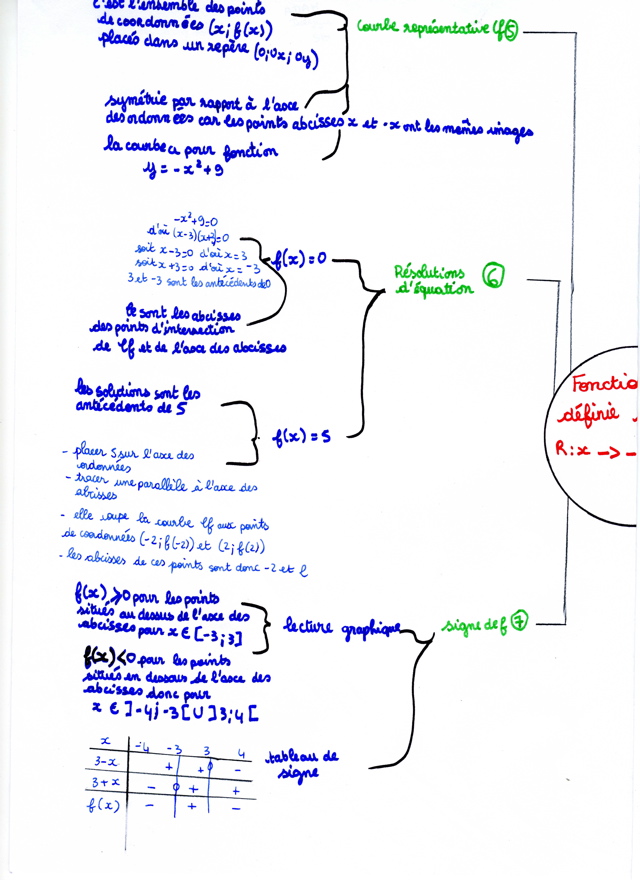 c'est l'ensemble des points
de coordonnées (x; f(x))
placés dans un repère (O; Ox; Oy)
courbe représentative Cf ⑤
symétrie par rapport à l'axe
des ordonnées car les points abcisses x et -x ont les mêmes images
la courbe a pour fonction
y = -x² + 9
-x²+9=0
d'où (x-3)(x+3)=0
soit x-3=0 d'où x=3
soit x+3=0 d'où x=-3
3 et -3 sont les antécédents de 0
f(x)=0
Ce sont les abcisses
des points d'intersection
de Cf et de l'axe des abcisses
Résolutions ⑥
d'équation
les solutions sont les
antécédents de 5
f(x)=5
- placer 5 sur l'axe des
ordonnées
- tracer une parallèle à l'axe des
abcisses
- elle coupe la courbe Cf aux points
de coordonnées (-2; f(-2)) et (2; f(2))
- les abcisses de ces points sont donc -2 et 2
Fonctio
définie
R: x -> -
f(x) ⩾0 pour les points
situés au dessus de l'axe des
abcisses pour x ∈ [-3;3]
lecture graphique
signe de f ⑦
f(x)<0 pour les points
situés en dessous de l'axe des
abcisses donc pour
x ∈ ]-4;-3[ U ]3;4[
x -4 -3 3 4
3-x + + 0 -
3+x - 0 + +
f(x) - + -
tableau de
signe